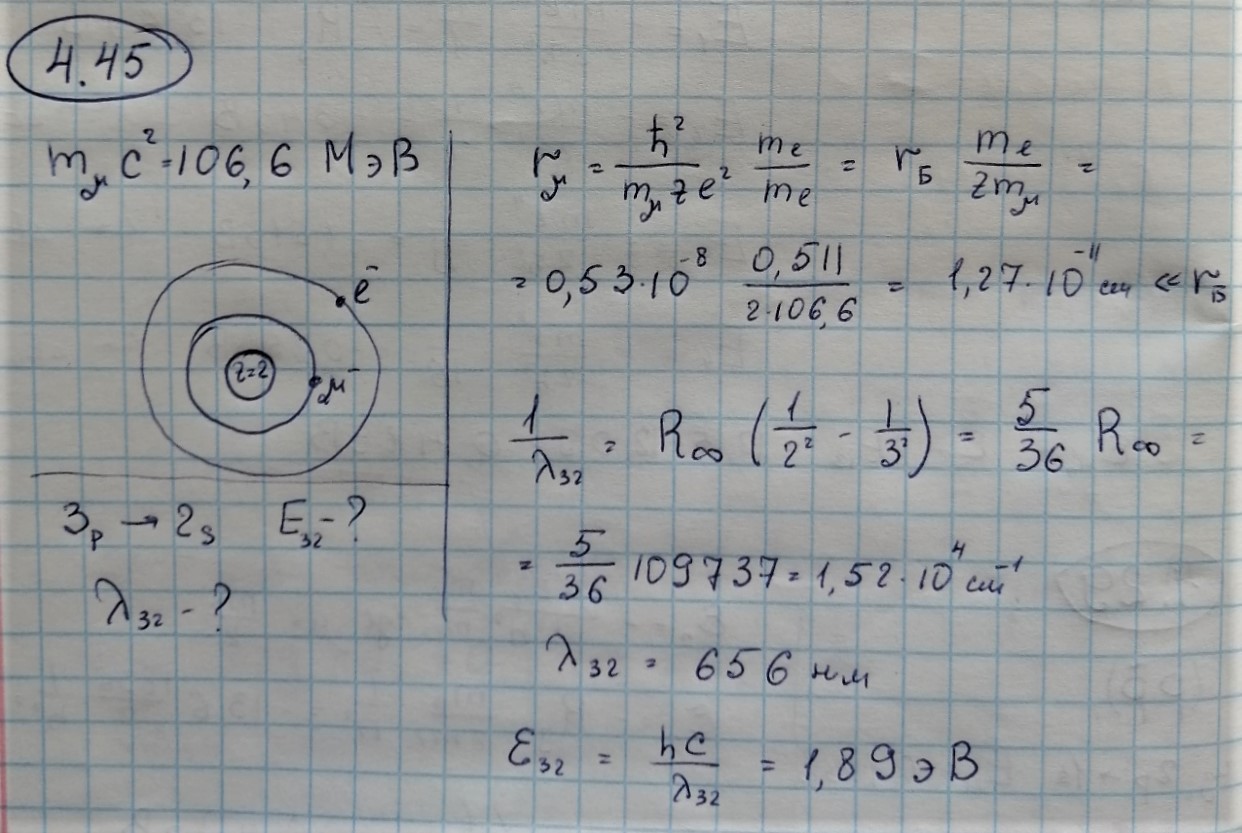 4.45
mμ c² = 106,6 МэВ
e⁻
z=2
μ⁻
3p → 2s E₃₂ - ?
λ₃₂ - ?
rμ = ħ²/(mμ z e²) mₑ/mₑ = r_Б mₑ/(z mμ) =
= 0,53·10⁻⁸ 0,511/(2·106,6) = 1,27·10⁻¹¹ см ≪ r_Б
1/λ₃₂ = R∞ (1/2² - 1/3²) = 5/36 R∞ =
= 5/36 109737 = 1,52·10⁴ см⁻¹
λ₃₂ = 656 нм
ε₃₂ = hc/λ₃₂ = 1,89 эВ